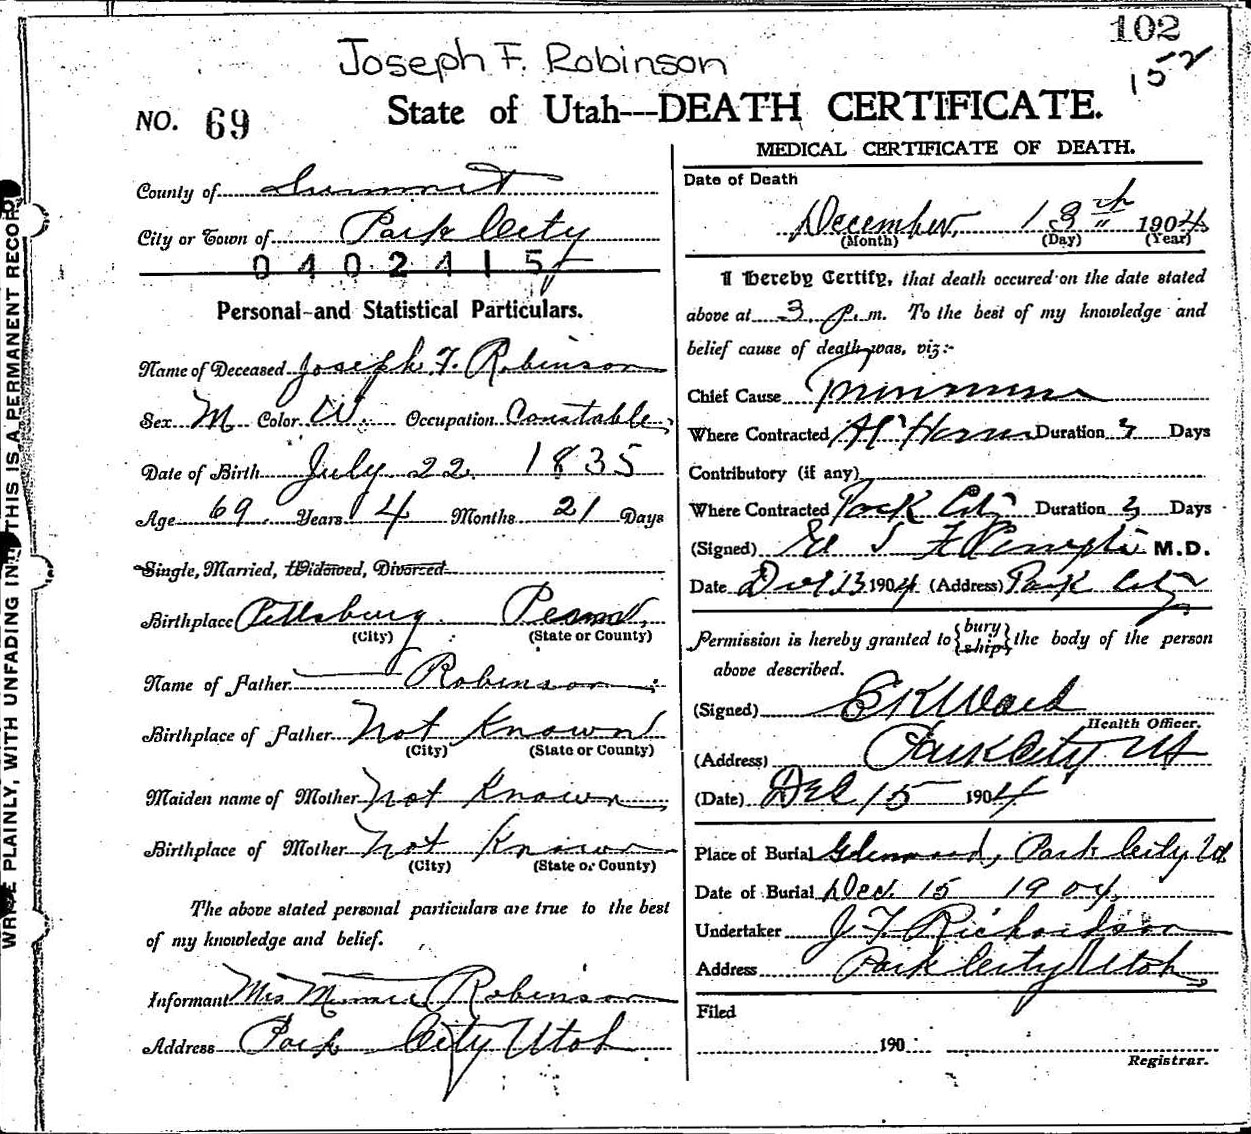 102
152
Joseph F. Robinson
NO. 69
State of Utah---DEATH CERTIFICATE.
County of Summit
City or Town of Park City
0402415
Personal and Statistical Particulars.
Name of Deceased Joseph F. Robinson
Sex M Color W. Occupation Constable
Date of Birth July 22. 1835
Age 69 Years 4 Months 21 Days
Single, Married, Widowed, Divorced
Birthplace Pittsburg Penna,
(City) (State or County)
Name of Father Robinson
Birthplace of Father Not Known
(City) (State or County)
Maiden name of Mother Not Known
Birthplace of Mother Not Known
(City) (State or County)
The above stated personal particulars are true to the best
of my knowledge and belief.
Informant Mrs Minnie Robinson
Address Park City Utah
MEDICAL CERTIFICATE OF DEATH.
Date of Death
December, 13th 1904
(Month) (Day) (Year)
I Hereby Certify, that death occured on the date stated
above at 3 p. m. To the best of my knowledge and
belief cause of death was, viz:-
Chief Cause
Where Contracted At Home Duration 3 Days
Contributory (if any)
Where Contracted Park City Duration 3 Days
(Signed) M.D.
Date Dec 13 1904 (Address) Park City
Permission is hereby granted to {bury ship} the body of the person
above described.
(Signed) E K Ward
Health Officer.
(Address) Park City Ut
(Date) Dec 15 1904
Place of Burial Glenwood, Park City Ut
Date of Burial Dec. 15 1904,
Undertaker J F Richardson
Address Park City Utah
Filed
190
Registrar.
WRITE PLAINLY, WITH UNFADING IN THIS IS A PERMANENT RECOR